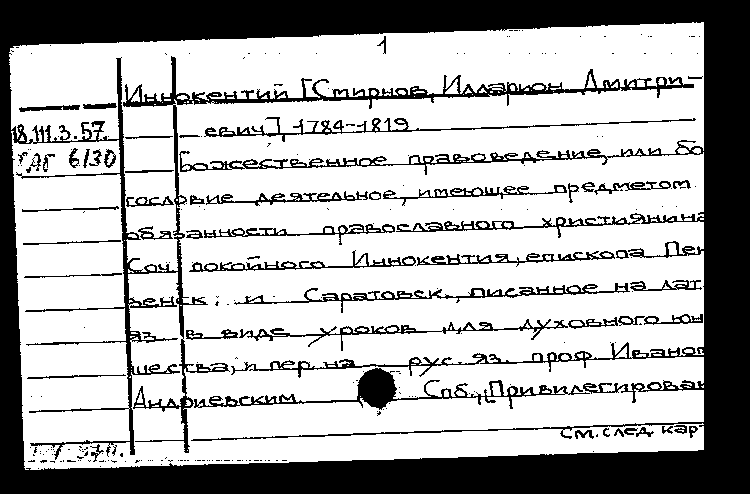 1
Иннокентий [Смирнов, Илларион Дмитри-
18.111.3.57. евич], 1784-1819.
6/30 Божественное правоведение, или бо
гословие деятельное, имеющее предметом
обязанности православного християнина
Соч. покойного Иннокентия, епископа Пен
зенск. и Саратовск., писанное на лат.
яз. в виде уроков для духовного юн
шества, и пер. на рус. яз. проф. Иваном
Андриевским. Спб., Привилегирован
См. след. кар